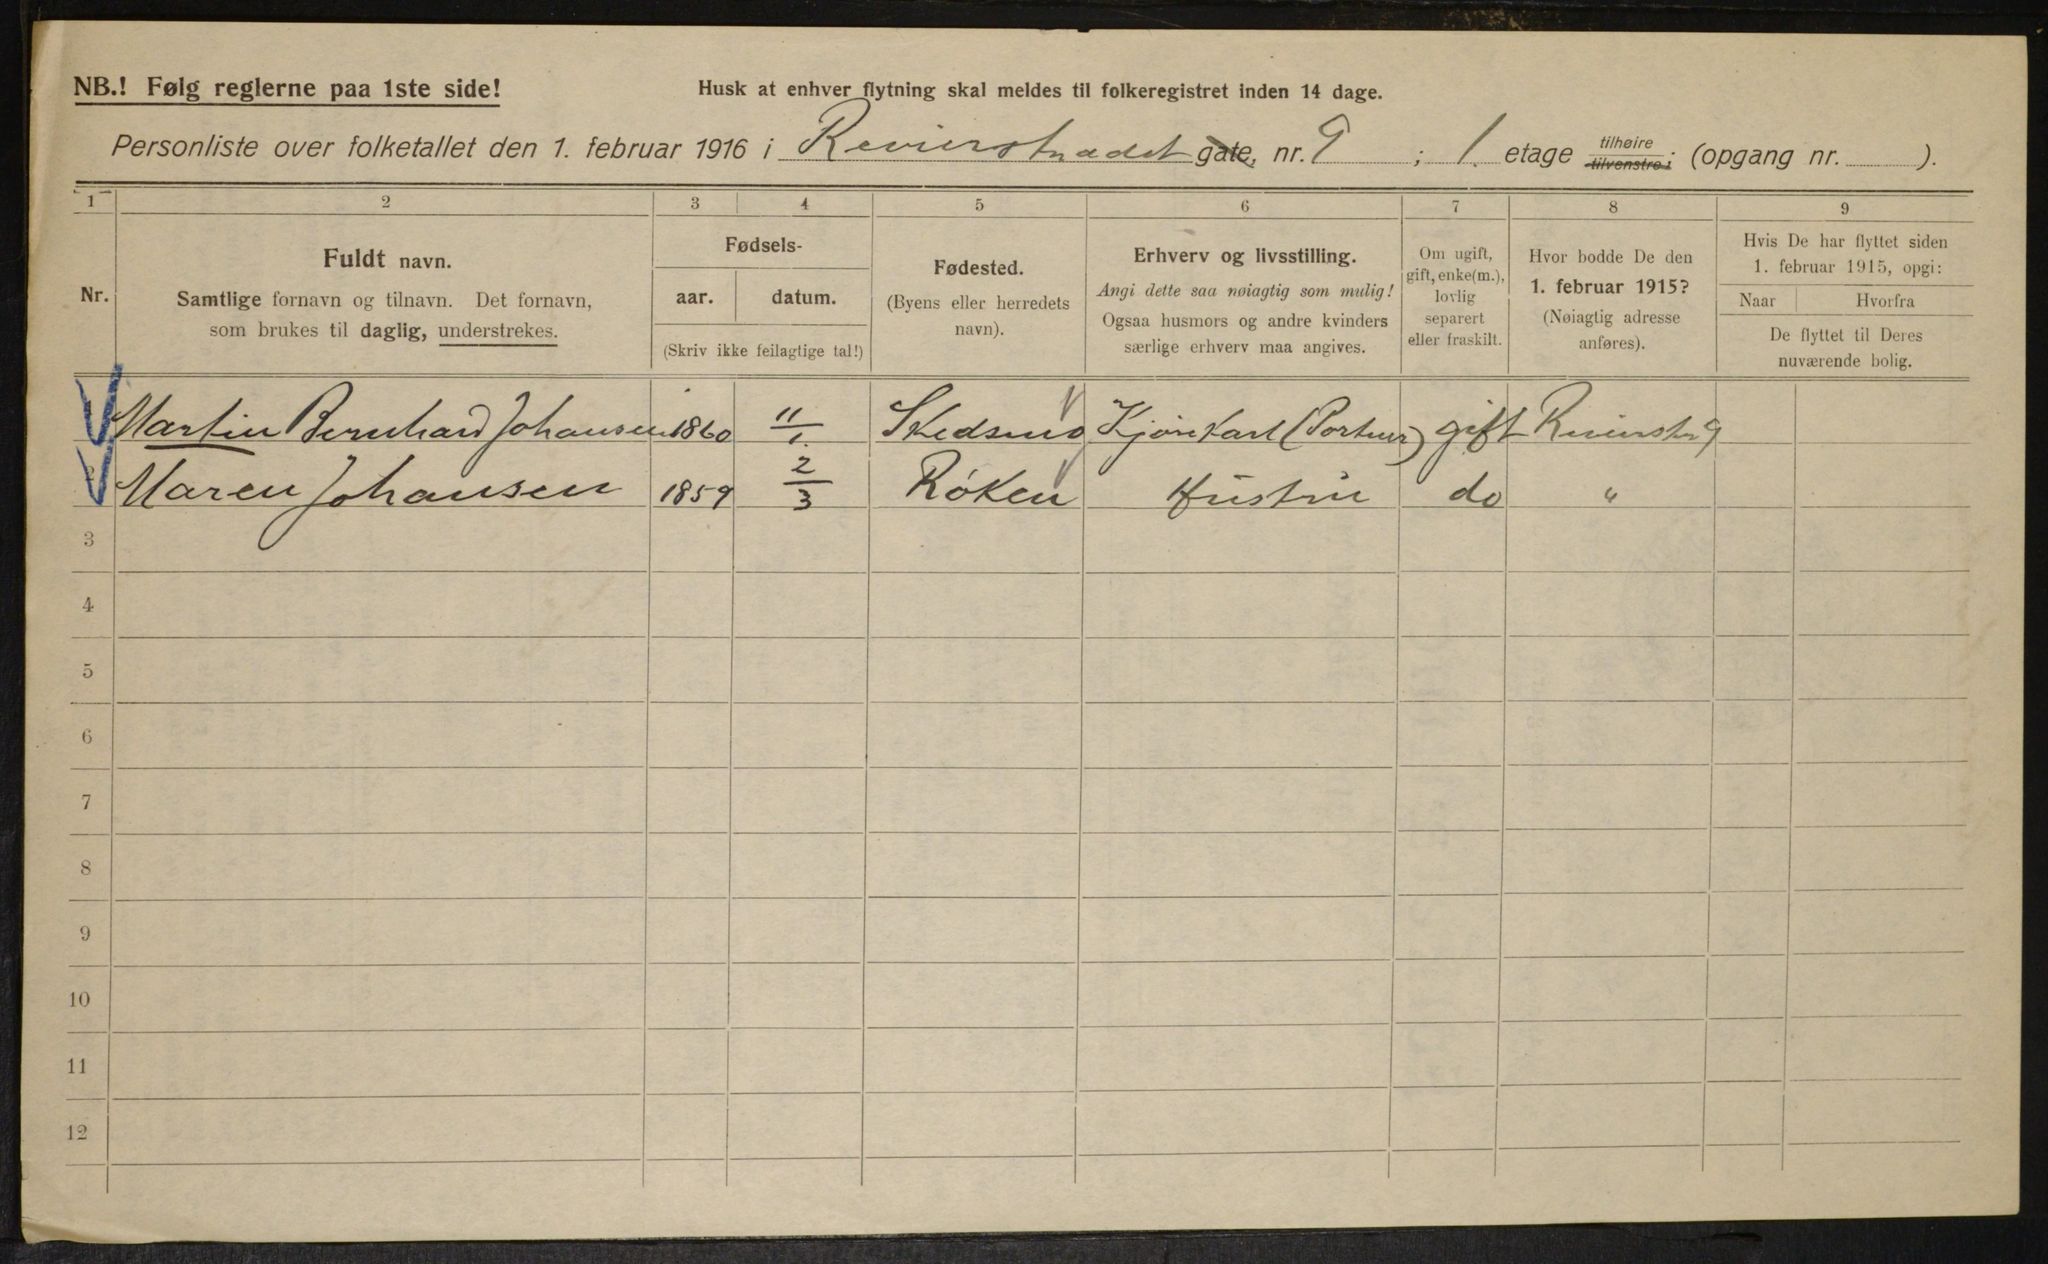 NB.! Følg reglerne paa 1ste side!
Husk at enhver flytning skal meldes til folkeregistret inden 14 dage.
Personliste over folketallet den 1. februar 1916 i Revierstrædet gate, nr. 9 ; 1. etage tilhøire tilvenstre; (opgang nr. ).
1 2 3 4 5 6 7 8 9
Nr.
Fuldt navn.
Samtlige fornavn og tilnavn. Det fornavn,
som brukes til daglig, understrekes.
Fødsels-
aar. datum.
(Skriv ikke feilagtige tal!)
Fødested.
(Byens eller herredets
navn).
Erhverv og livsstilling.
Angi dette saa nøiagtig som mulig!
Ogsaa husmors og andre kvinders
særlige erhverv maa angives.
Om ugift,
gift, enke(m.),
lovlig
separert
eller fraskilt.
Hvor bodde De den
1. februar 1915?
(Nøiagtig adresse
anføres).
Hvis De har flyttet siden
1. februar 1915, opgi:
Naar Hvorfra
De flyttet til Deres
nuværende bolig.
Martin Bernhard Johansen 1860 11/1. Skedsmo Kjørekarl (Portner) gift Revierstr 9
Maren Johansen 1859 2/3 Røken Hustru do "
3
4
5
6
7
8
9
10
11
12